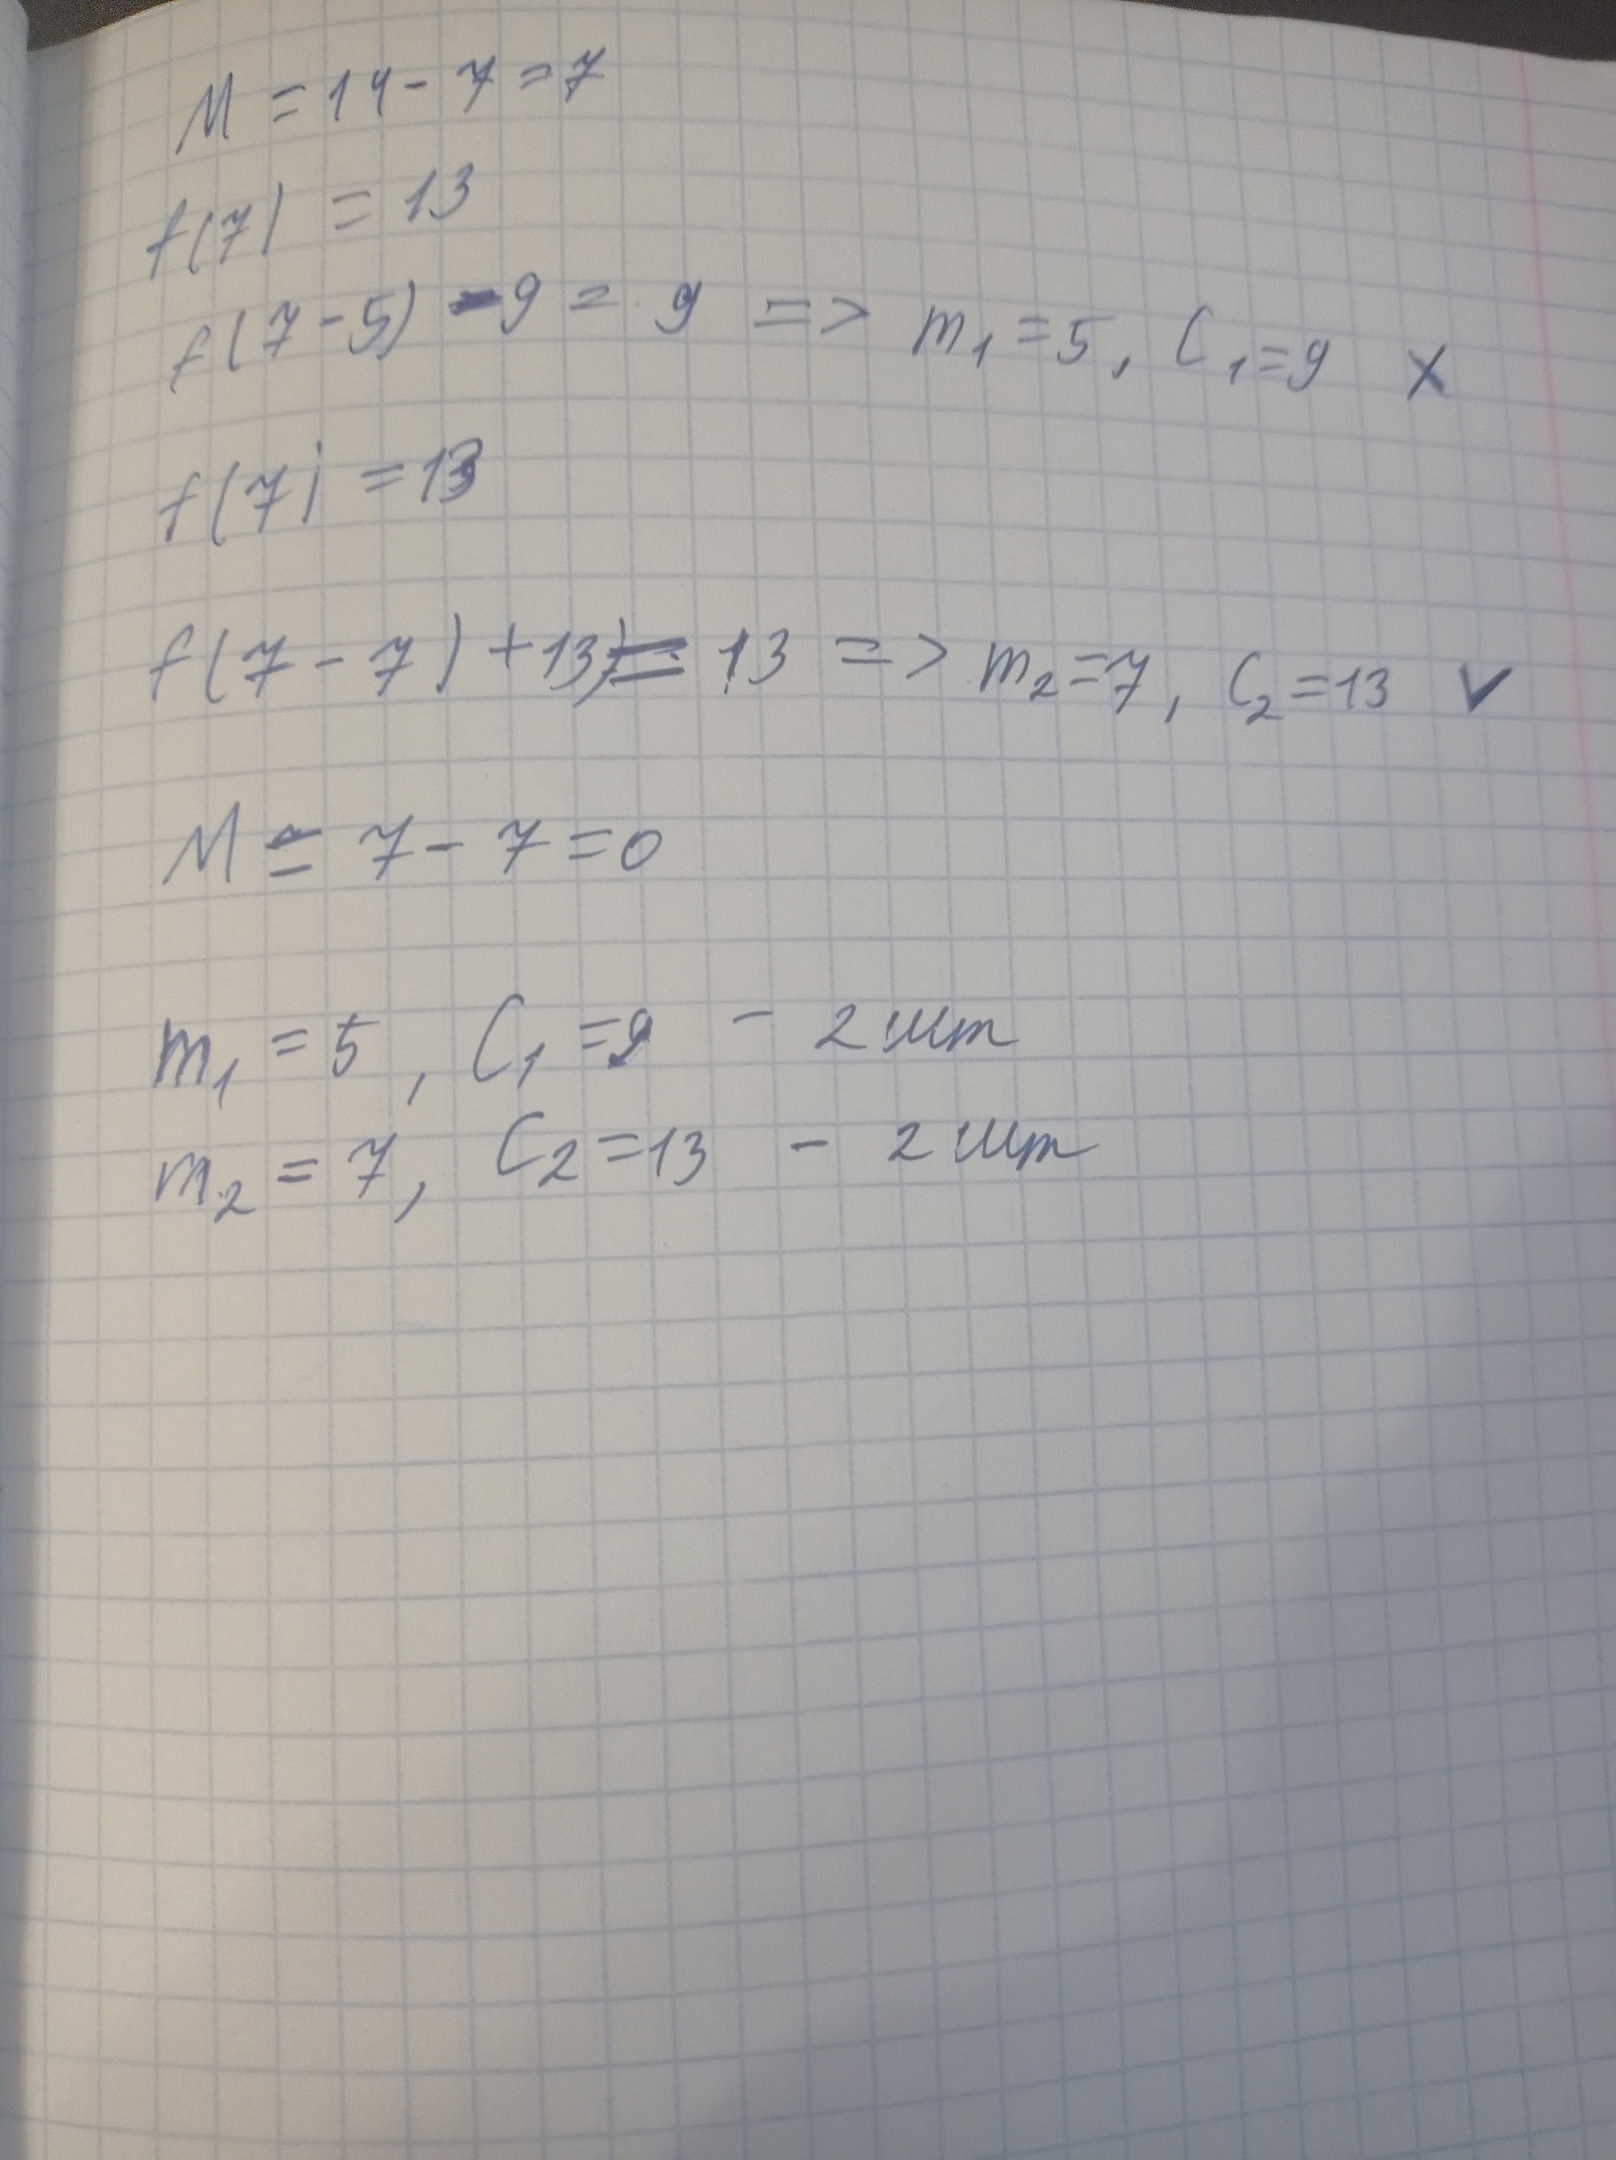 M = 14 - 7 = 7
f(7) = 13
f(7-5) - 9 = 9 => m₁ = 5, C₁ = 9 x
f(7) = 13
f(7-7) + 13) = 13 => m₂ = 7, C₂ = 13 v
M = 7 - 7 = 0
m₁ = 5, C₁ = 9 - 2 шт
m₂ = 7, C₂ = 13 - 2 шт